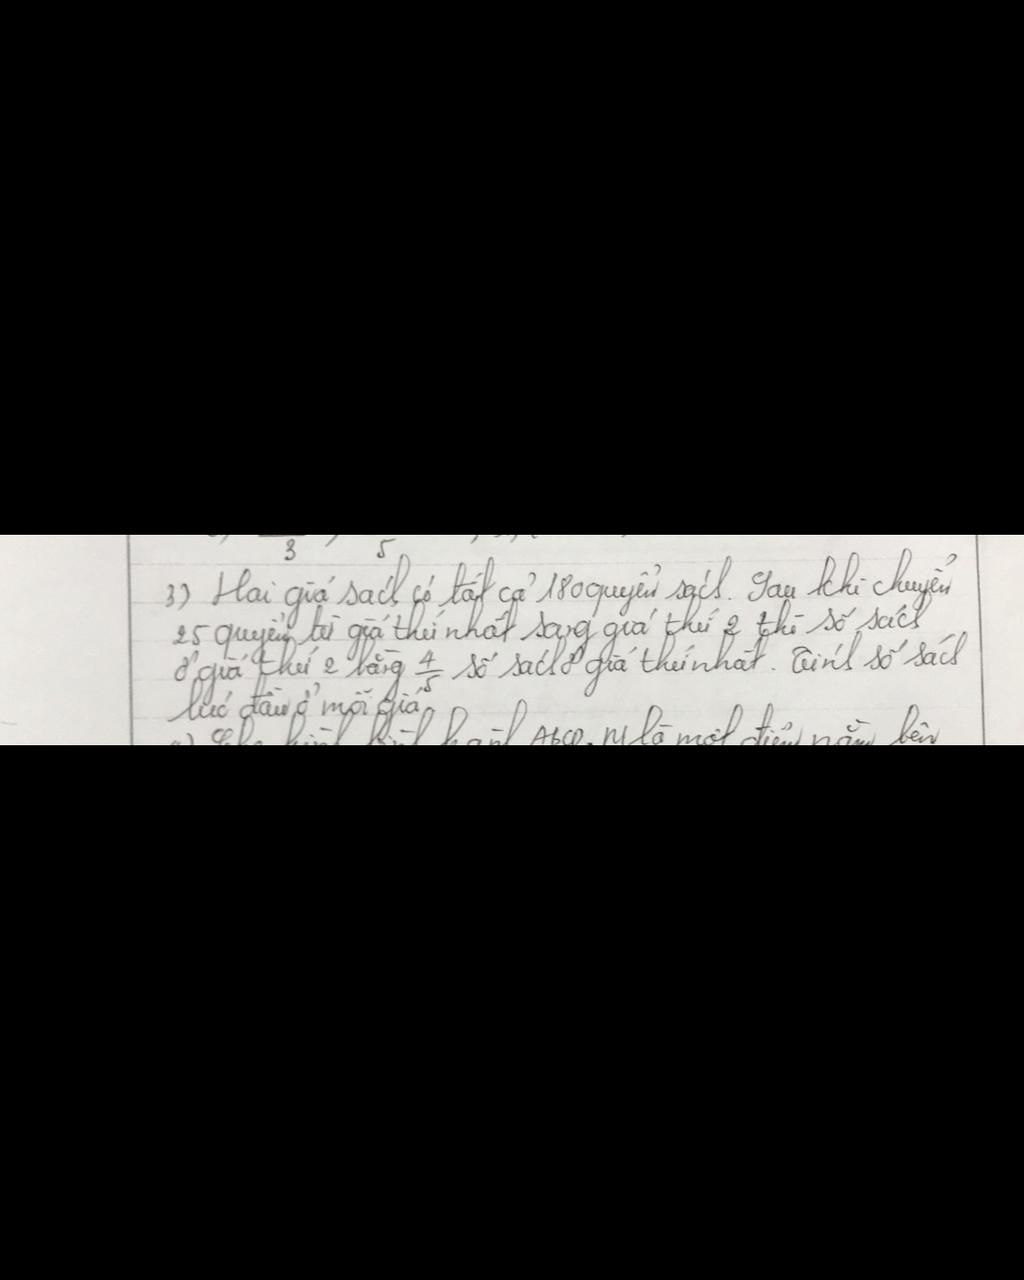 3 5
3) Hai giá sách có tất cả 180 quyển sách. Sau khi chuyển
25 quyển từ giá thứ nhất sang giá thứ 2 thì số sách
ở giá thứ 2 bằng 4/5 số sách ở giá thứ nhất. Tính số sách
lúc đầu ở mỗi giá.
hình bình hành ABCD. M là một điểm nằm bên